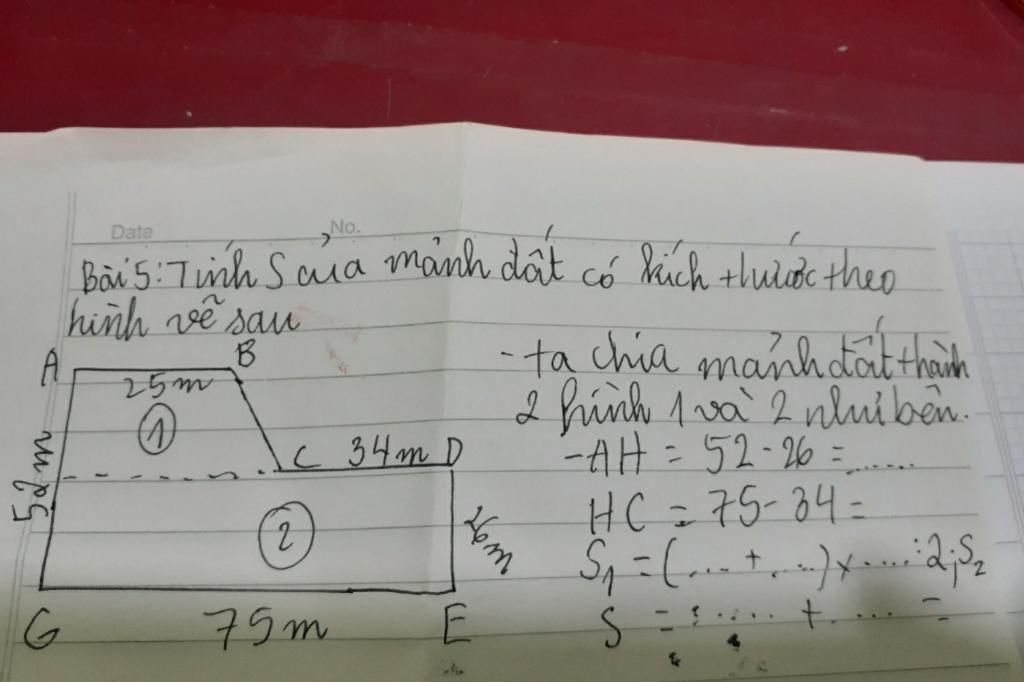 Date No.
Bài 5: Tính S của mảnh đất có kích thước theo
hình vẽ sau
A B
25m
1
52m
C 34m D
2
26m
G 75m E
- ta chia mảnh đất thành
2 hình 1 và 2 như bên.
- AH = 52 - 26 = ......
HC = 75 - 34 =
S1 = (.... + ....) x .... : 2; S2
S = ...... + .... =